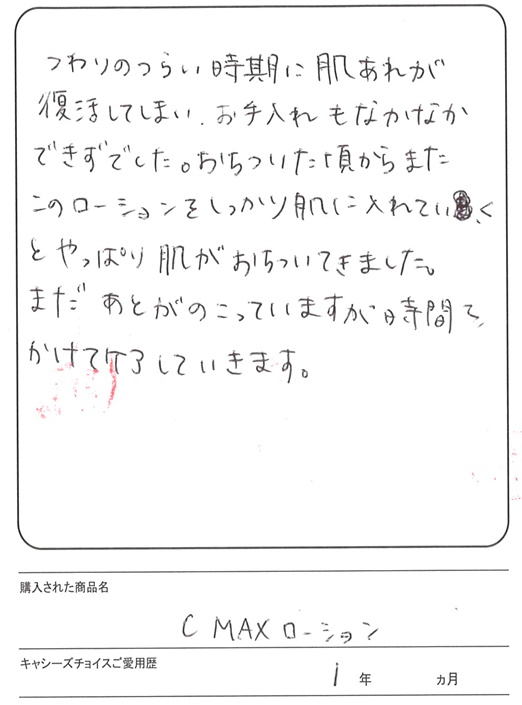 つわりのつらい時期に肌あれが
復活してしまい、お手入れもなかなか
できずでした。おちついた頃からまた
このローションをしっかり肌に入れていく
とやっぱり肌がおちついてきました。
まだあとがのこっていますが時間を
かけてケアしていきます。
購入された商品名
C MAX ローション
キャシーズチョイスご愛用歴
1年 ヵ月